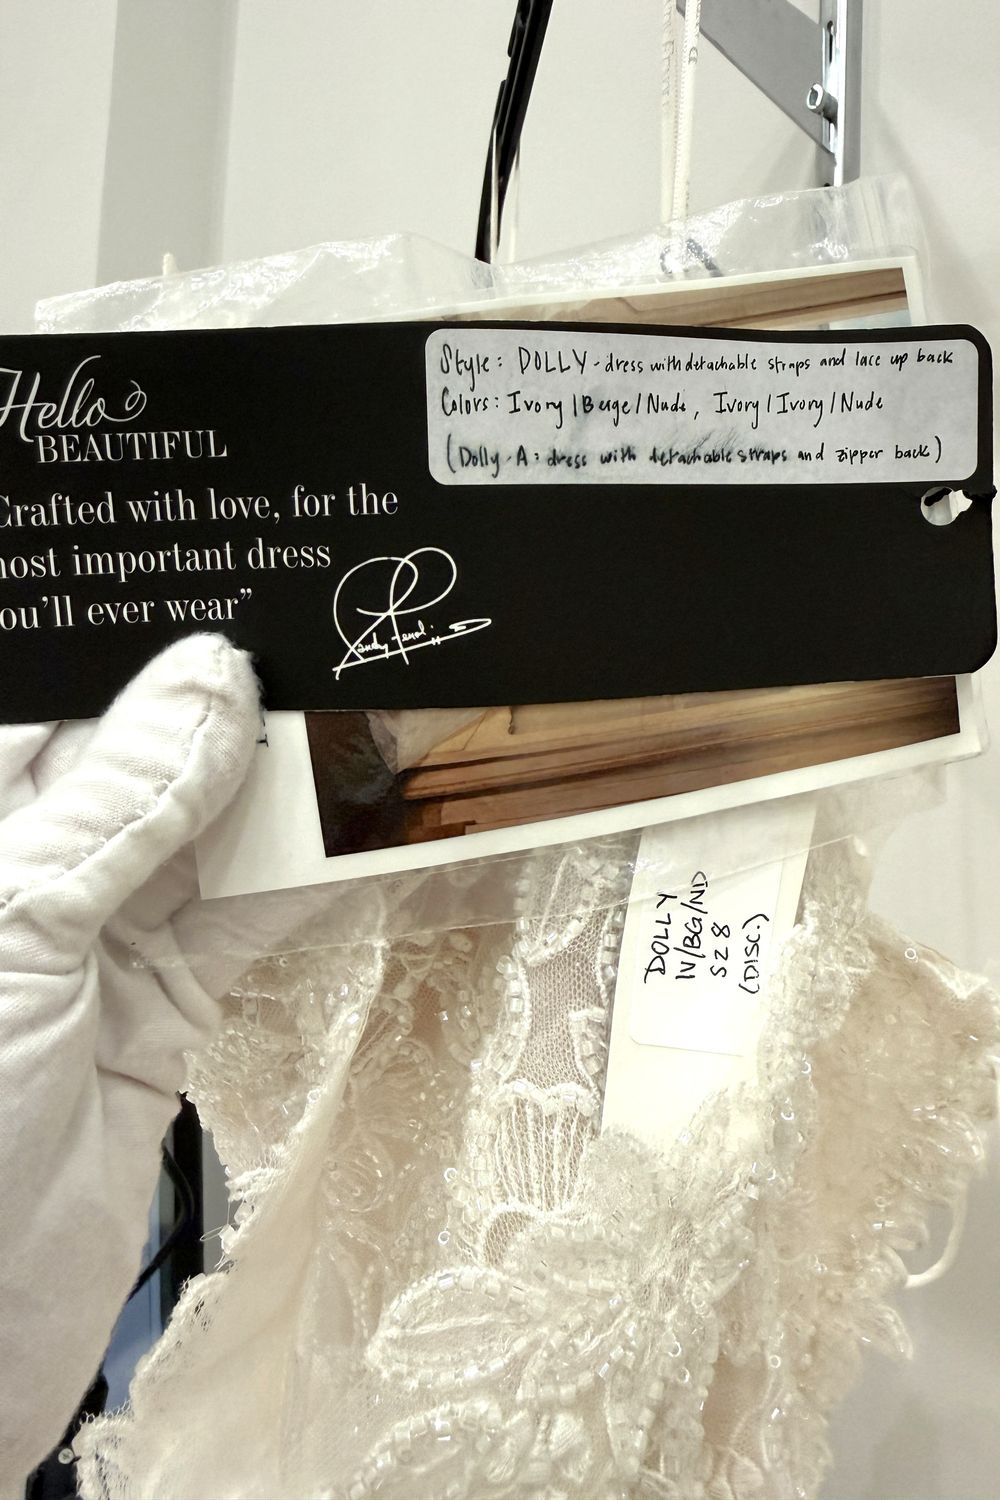 Hello
BEAUTIFUL
Crafted with love, for the
most important dress
you'll ever wear”
Randy Fenoli
Style: DOLLY - dress with detachable straps and lace up back
Colors: Ivory/Beige/Nude, Ivory/Ivory/Nude
(Dolly-A: dress with detachable straps and zipper back)
DOLLY
IV/BG/ND
SZ 8
(DISC.)